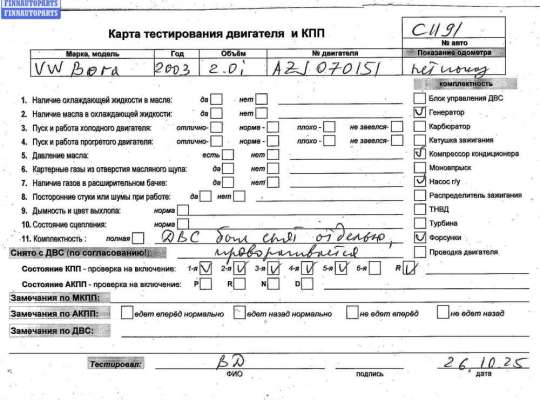 FINNAUTOPARTS
FINNAUTOPARTS
Карта тестирования двигателя и КПП
С1191
№ авто
Марка, модель Год Объём № двигателя Показание одометра
VW Bora 2003 2.0i AZJ 070151 нет показ
комплектность
1. Наличие охлаждающей жидкости в масле: да нет
2. Наличие масла в охлаждающей жидкости: да нет
3. Пуск и работа холодного двигателя: отлично- норма - плохо - не завелся-
4. Пуск и работа прогретого двигателя: отлично- норма - плохо - не завелся-
5. Давление масла: есть нет
6. Картерные газы из отверстия масляного щупа: да нет
7. Наличие газов в расширительном бачке: да нет
8. Посторонние стуки или шумы при работе: да нет
9. Дымность и цвет выхлопа: норма
10. Состояние сцепления: норма
11. Комплектность : полная ДВС был снят отдельно,
Снято с ДВС (по согласованию!): проворачивается
Блок управления ДВС
Генератор
Карбюратор
Катушка зажигания
Компрессор кондиционера
Моновпрыск
Насос г/у
Распределитель зажигания
ТНВД
Турбина
Форсунки
Проводка двигателя
Состояние КПП - проверка на включение: 1-я 2-я 3-я 4-я 5-я 6-я R
Состояние АКПП - проверка на включение: P R N D
Замечания по МКПП:
Замечания по АКПП: едет вперёд нормально едет назад нормально не едет вперёд не едет назад
Замечания по ДВС:
Тестировал: ВД 26.10.25
ФИО подпись дата